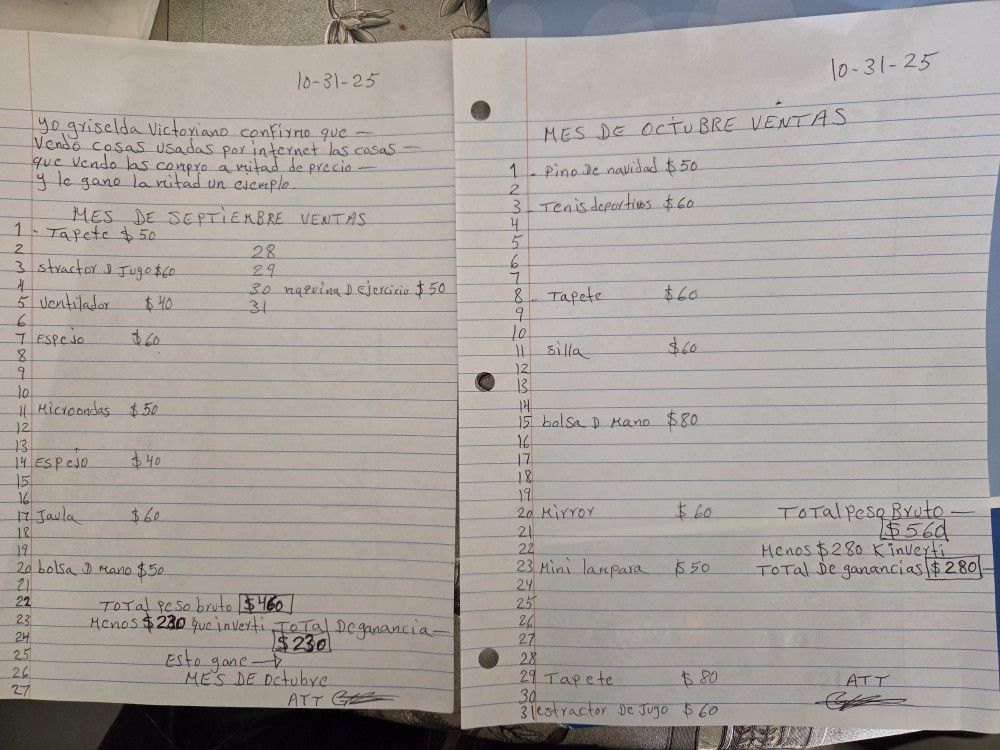 10-31-25
yo griselda Victoriano confirmo que —
Vendo cosas usadas por internet las cosas —
que vendo las compro a mitad de precio —
y le gano la mitad un ejemplo.
MES DE SEPTIEMBRE VENTAS
1 - Tapete $50
2 28
3 stractor D Jugo $60 29
4 30 maquina D ejercicio $50
5 ventilador $40 31
6
7 Espejo $60
8
9
10
11 Microondas $50
12
13
14 Espejo $40
15
16
17 Jaula $60
18
19
20 bolsa D mano $50
21
22 Total peso bruto $460
23 Menos $230 que inverti Total De ganancia —
24 $230
25 Esto gane →
26 MES DE Octubre
27 ATT
10-31-25
MES DE OCTUBRE VENTAS
1 - Pino De navidad $50
2
3 - Tenis deportivos $60
4
5
6
7
8 - Tapete $60
9
10
11 silla $60
12
13
14
15 bolsa D Mano $80
16
17
18
19
20 Mirror $60 Total peso Bruto —
21 $560
22 Menos $280 K inverti
23 Mini lampara $50 Total De ganancias $280 —
24
25
26
27
28
29 Tapete $80 ATT
30
31 estractor De Jugo $60